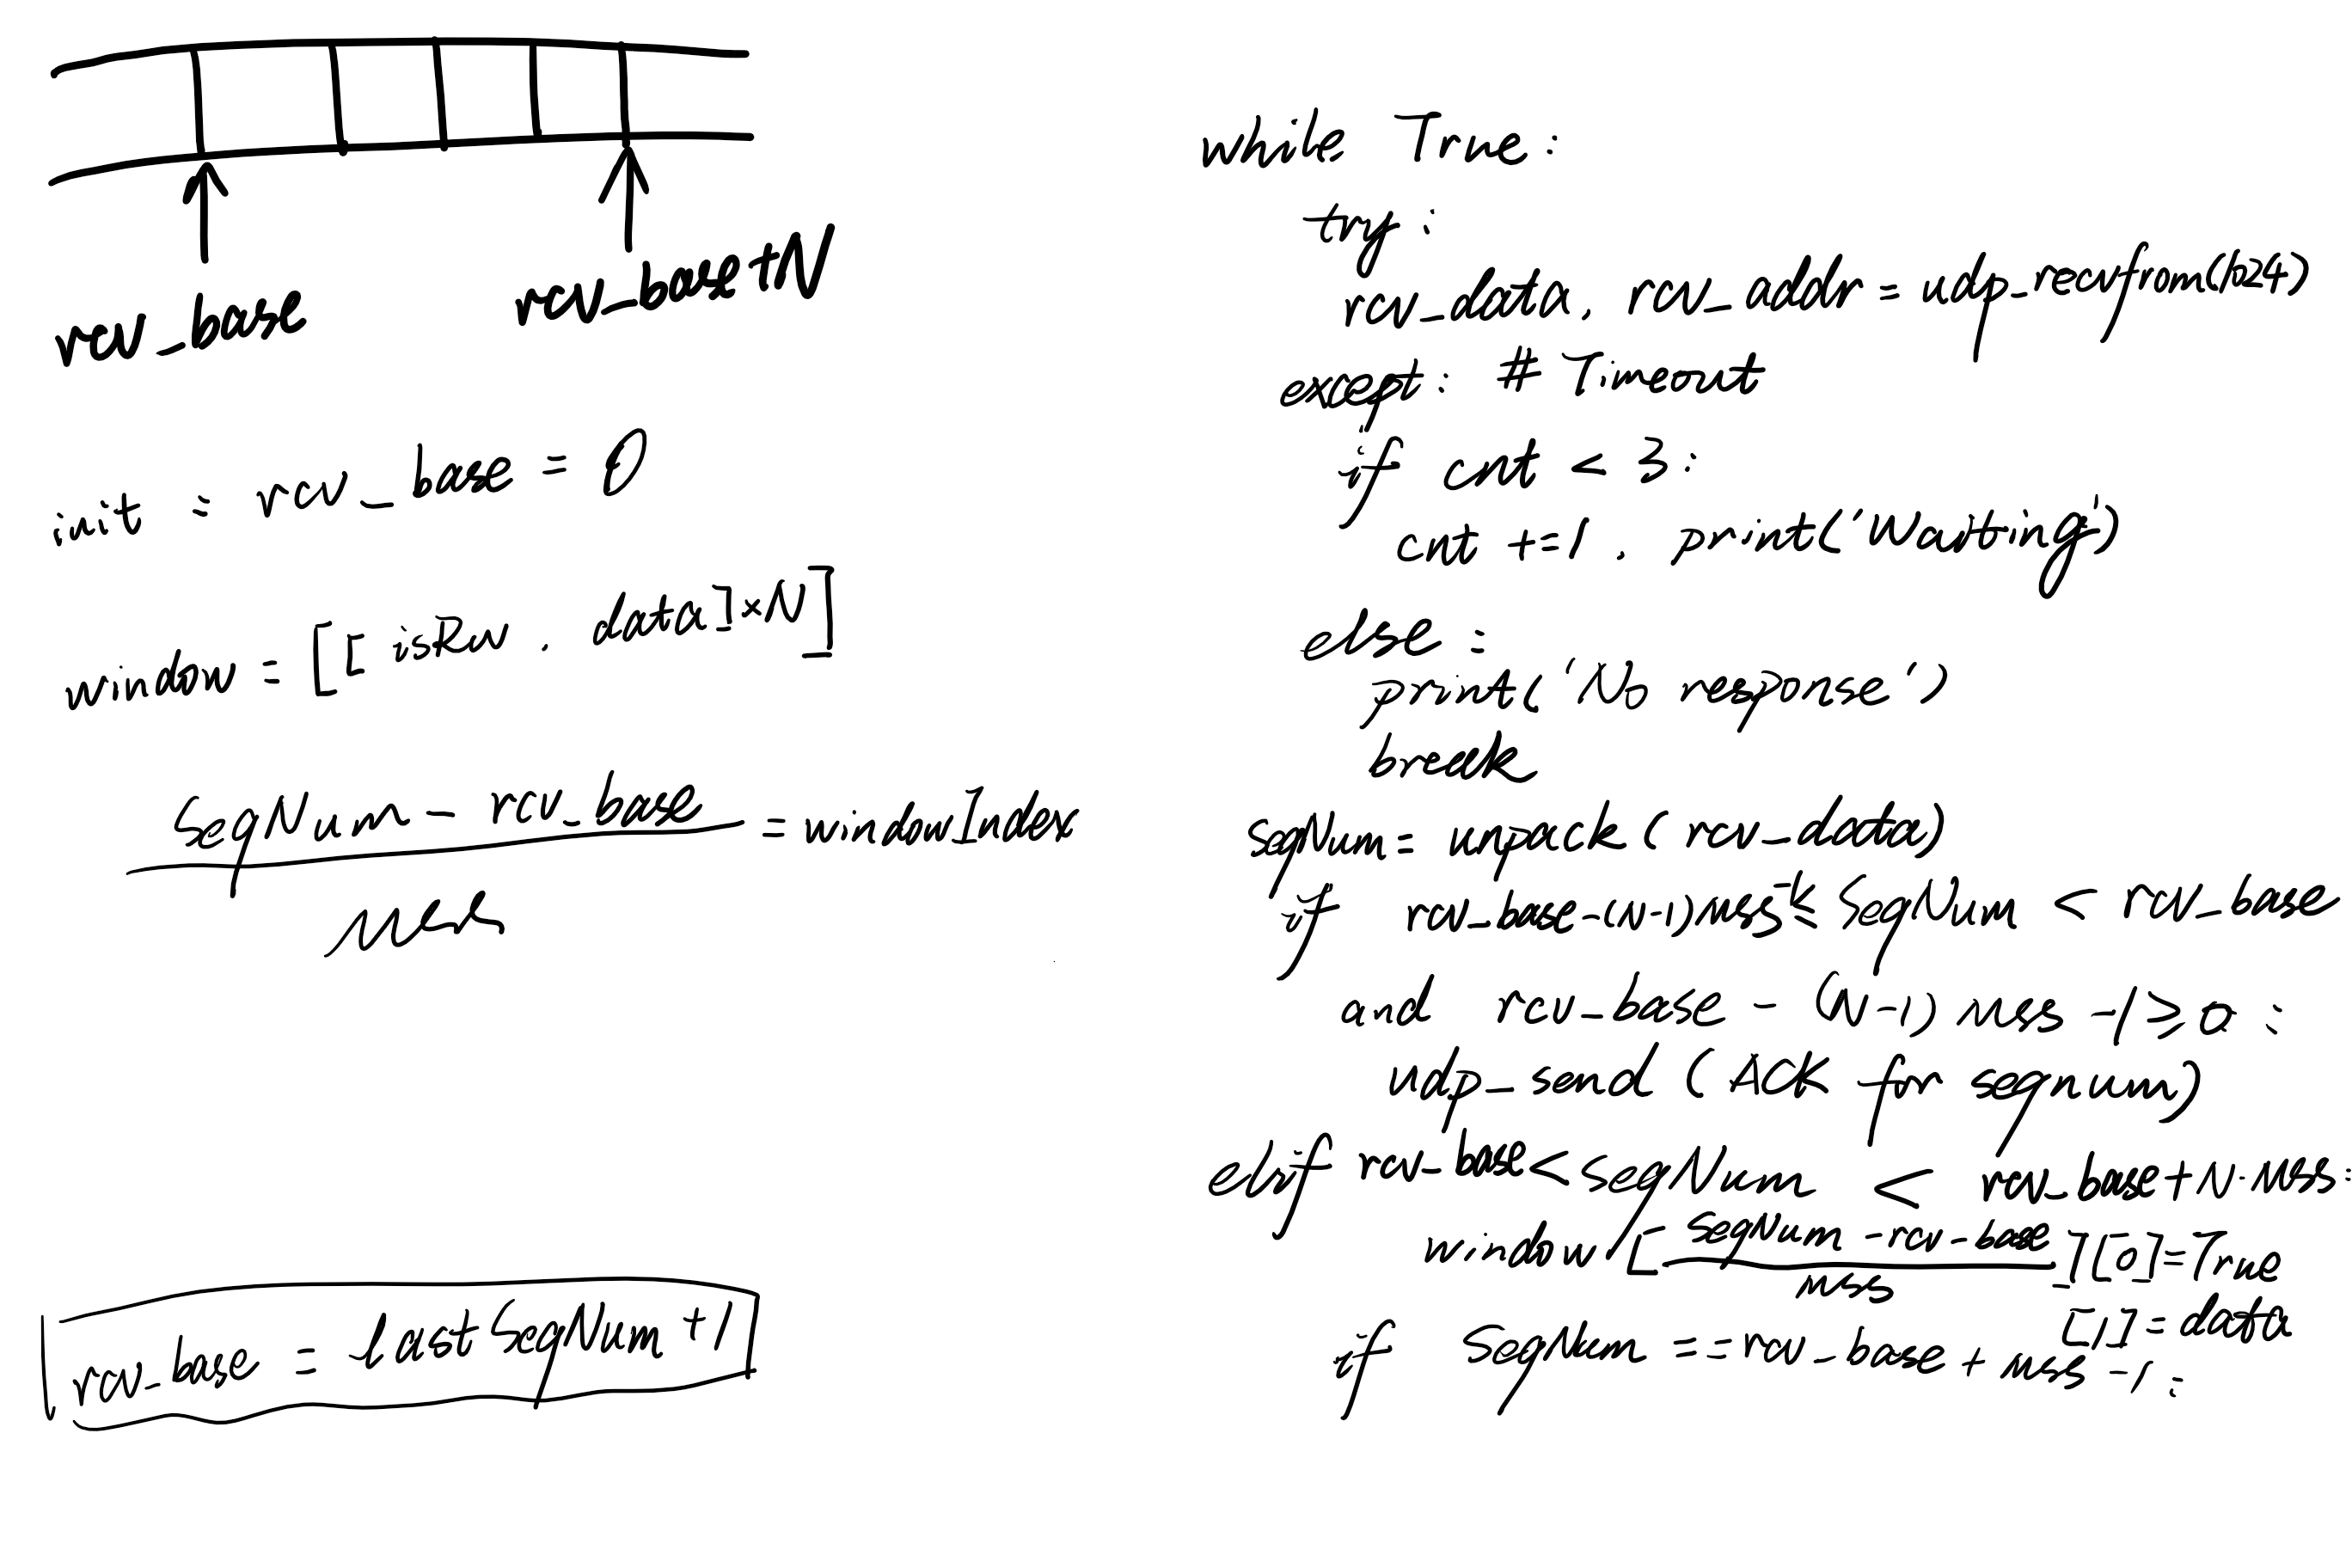 rcv_base
rcv_base+N
init : rcv_base = 0
window = [[isRcv, data]×N]
SeqNum - rcv_base = windowIndex
mss
rcv_base = LastSeqNum +1
while True:
try:
rcv_data, rcv_addr = udp_recvfrom(1024)
except: # Timeout
if cnt < 3:
cnt +=1, print('Waiting')
else:
print('No response')
break
seqNum = unpack(rcv_data)
if rcv_base-(N-1)mss ≤ SeqNum < rcv_base
and rcv_base - (N-1) mss -1 ≥ 0 :
udp_send (ACK for seqnum)
elif rcv_base < seqNum < rcv_base+N·mss:
window [seqNum - rcv-base][0]=True
mss
[1]=data
if SeqNum == rcv-base + mss -1 :